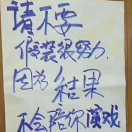 请不要
假装很努力,
因为结果
不会陪你演戏